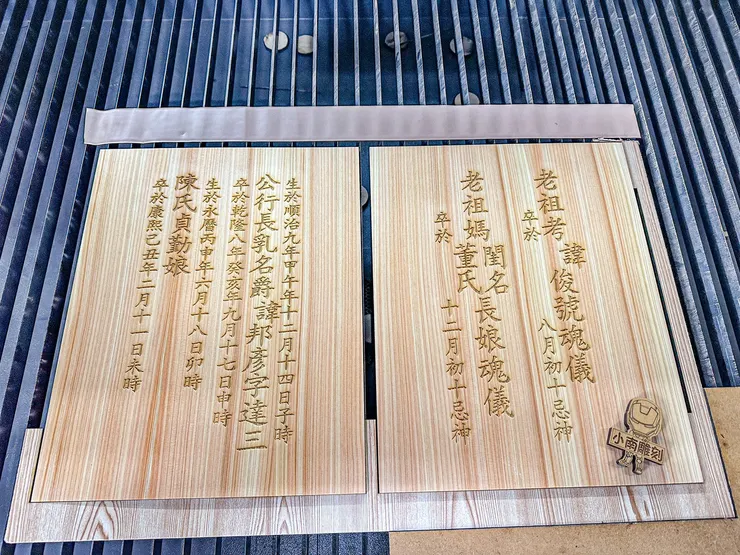 老祖考諱俊號魂儀
卒於八月初十忌神
老祖媽董氏閨名長娘魂儀
卒於十二月初十忌神
生於順治九年甲午年十二月十四日子時
公行長乳名爵諱邦彥字達三
卒於乾隆八年癸亥年九月十七日申時
生於永曆丙申年六月十八日卯時
陳氏貞勤娘
卒於康熙己丑年二月十一日未時
小南雕刻